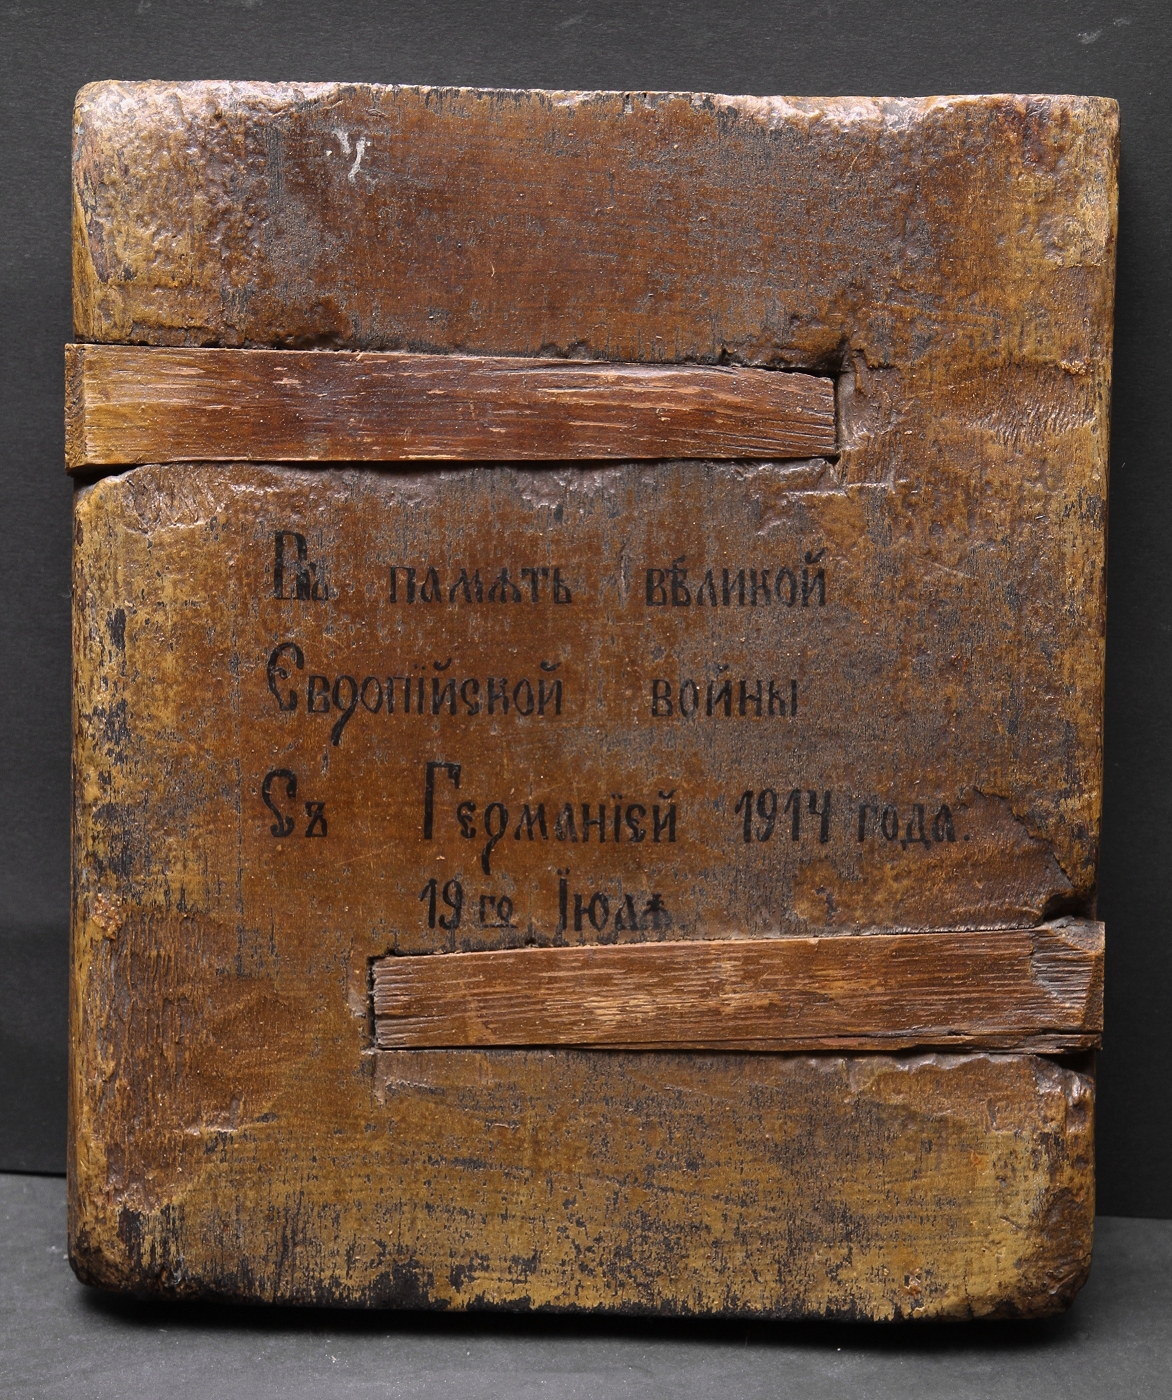 Въ память вѣликой
Европїйской войны
Съ Германїей 1914 года.
19го Їюля.